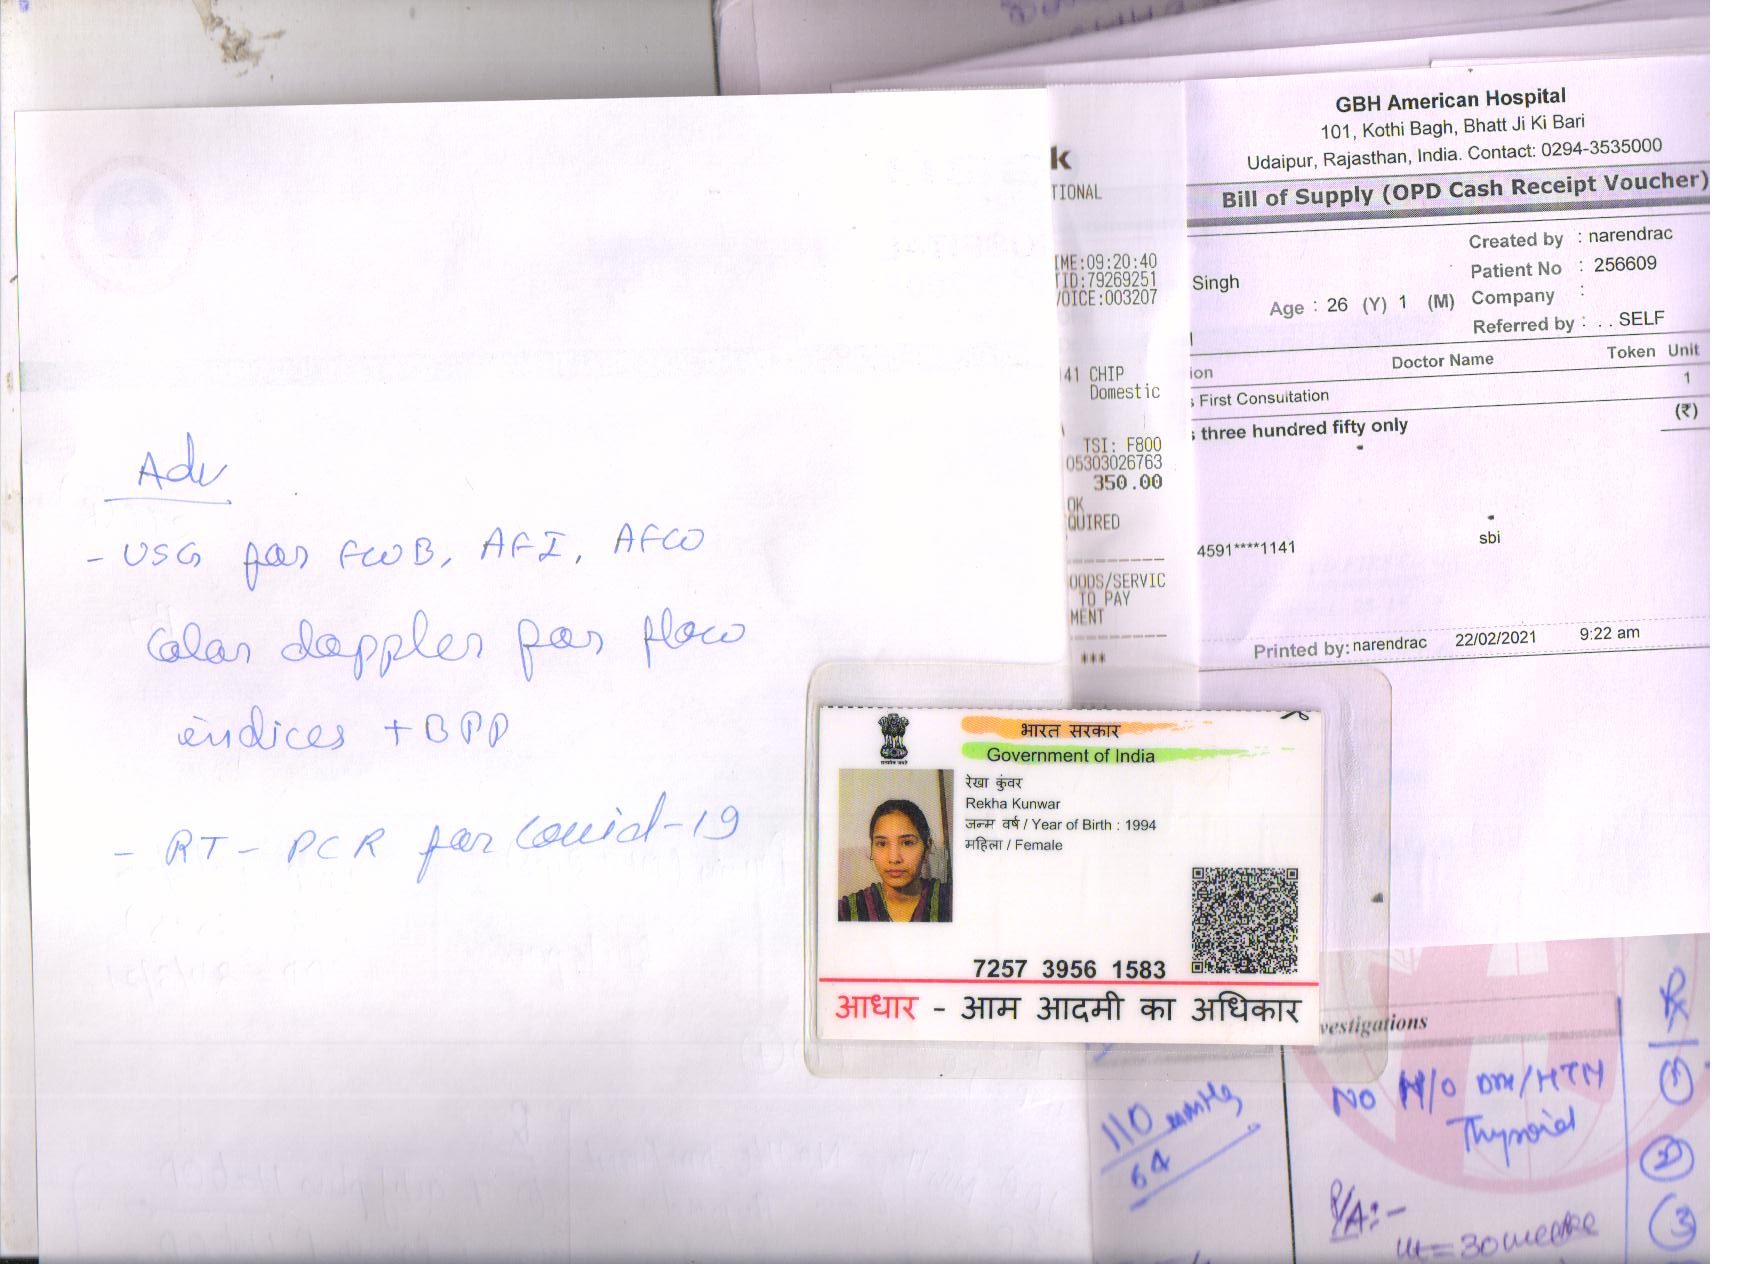 GBH American Hospital
101, Kothi Bagh, Bhatt Ji Ki Bari
Udaipur, Rajasthan, India. Contact: 0294-3535000
Bill of Supply (OPD Cash Receipt Voucher)
Created by : narendrac
Singh
Patient No : 256609
Age : 26 (Y) 1 (M)
Company :
Referred by : . . SELF
ion Doctor Name Token Unit
s First Consultation 1
(₹)
s three hundred fifty only
4591****1141 sbi
Printed by: narendrac 22/02/2021 9:22 am
k
TIONAL
IME:09:20:40
TID:79269251
VOICE:003207
41 CHIP
Domestic
TSI: F800
05303026763
350.00
OK
QUIRED
OODS/SERVIC
TO PAY
MENT
***
Adv
- USG for FWB, AFI, AFW
Color doppler for flow
indices + BPP
- RT-PCR for Covid-19
भारत सरकार
Government of India
रेखा कुंवर
Rekha Kunwar
जन्म वर्ष / Year of Birth : 1994
महिला / Female
7257 3956 1583
आधार - आम आदमी का अधिकार
vestigations
Rx
110
64
No H/O DM/HTN
Thyroid
P/A:-
1
2
3